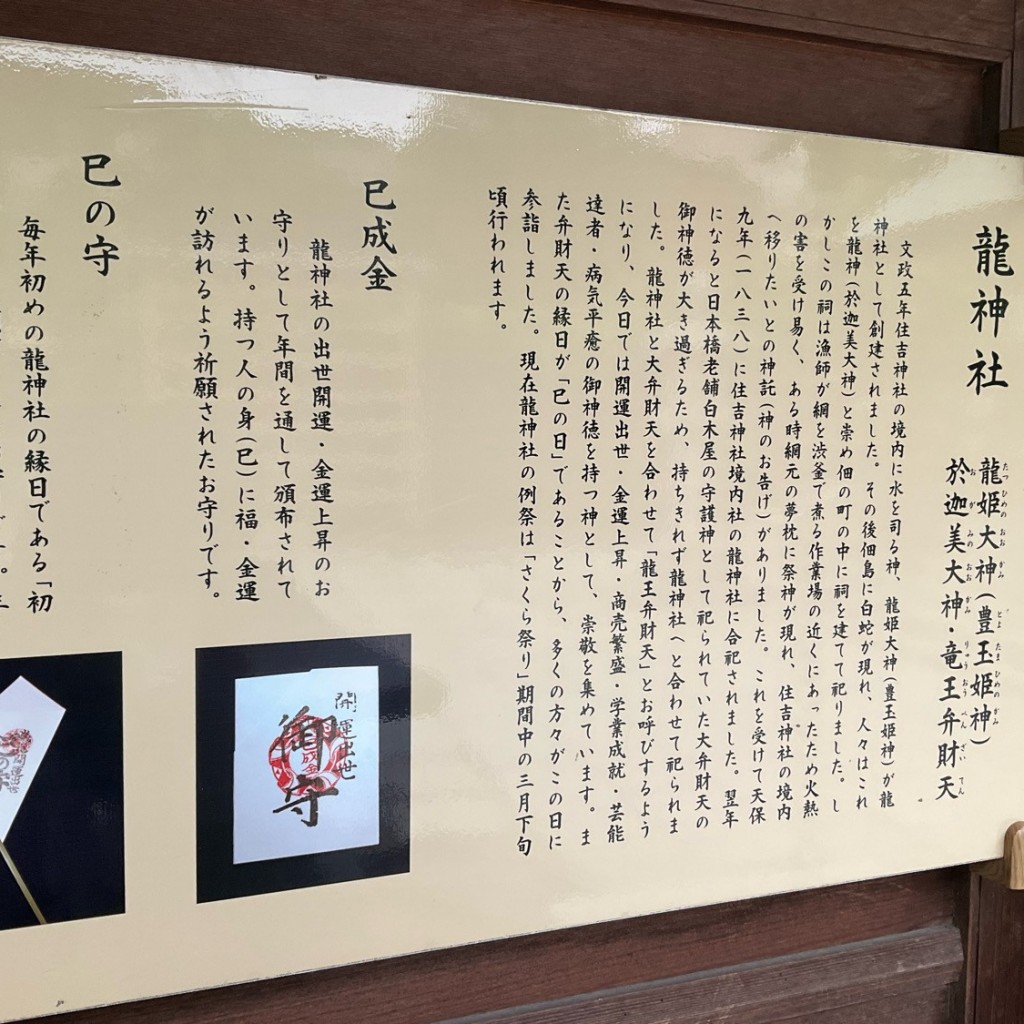 龍神社
龍姫大神(豊玉姫神)
於迦美大神・竜王弁財天
文政五年住吉神社の境内に水を司る神、龍姫大神(豊玉姫神)が龍
神社として創建されました。その後佃島に白蛇が現れ、人々はこれ
を龍神(於迦美大神)と崇め佃の町の中に祠を建てて祀りました。し
かしこの祠は漁師が網を渋釜で煮る作業場の近くにあったため火熱
の害を受け易く、ある時網元の夢枕に祭神が現れ、住吉神社の境内
へ移りたいとの神託(神のお告げ)がありました。これを受けて天保
九年(一八三八)に住吉神社境内社の龍神社に合祀されました。翌年
になると日本橋老舗白木屋の守護神として祀られていた大弁財天の
御神徳が大き過ぎるため、持ちきれず龍神社へと合わせて祀られま
した。龍神社と大弁財天を合わせて「龍王弁財天」とお呼びするよう
になり、今日では開運出世・金運上昇・商売繁盛・学業成就・芸能
達者・病気平癒の御神徳を持つ神として、崇敬を集めています。ま
た弁財天の縁日が「巳の日」であることから、多くの方々がこの日に
参詣しました。現在龍神社の例祭は「さくら祭り」期間中の三月下旬
頃行われます。
巳成金
龍神社の出世開運・金運上昇のお
守りとして年間を通して頒布されて
います。持つ人の身(巳)に福・金運
が訪れるよう祈願されたお守りです。
開運出世
御守
巳の守
毎年初めの龍神社の縁日である「初